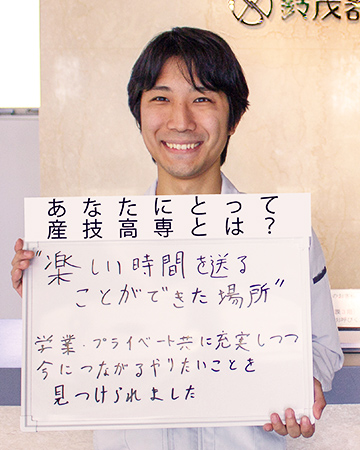 鈴茂器
あなたにとって
産技高専とは？
"楽しい時間を送る
ことができた場所"
学業・プライベート共に充実しつつ
今につながるやりたいことを
見つけられました